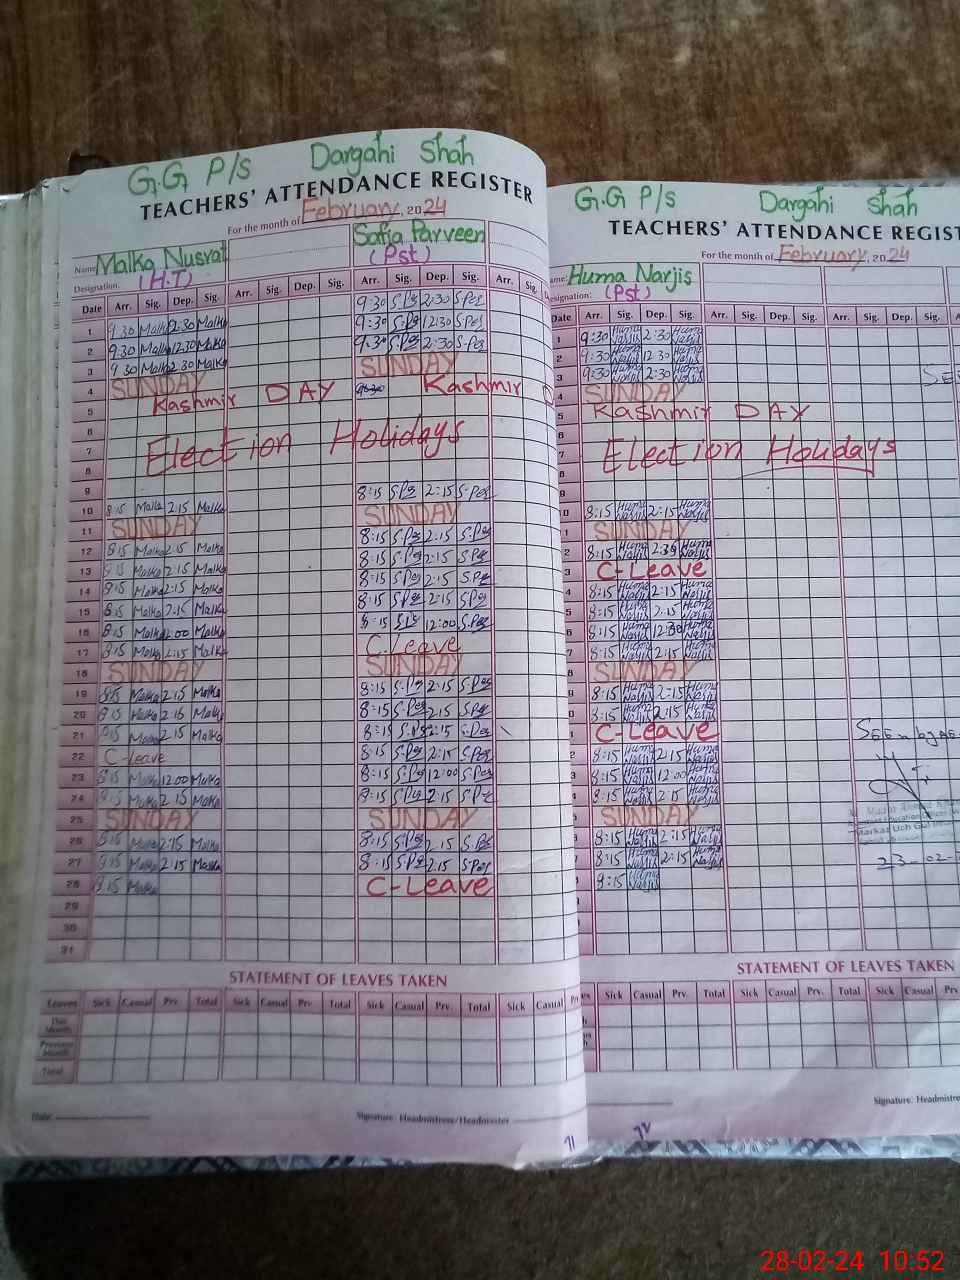 G.G P/S Dargahi Shah
TEACHERS' ATTENDANCE REGISTER
For the month of February, 2024
Name Malka Nusrat Safia Parveen
Designation: (H.T) (Pst)
Date Arr. Sig. Dep. Sig. Arr. Sig. Dep. Sig. Arr. Sig. Dep. Sig. Arr. Sig.
9:30 S.Per 2:30 S.Per
1 9:30 Malka 2:30 Malka 9:30 S.Per 12:30 S.Per
2 9:30 Malka 12:30 Malka 9:30 S.Per 2:30 S.Per
3 9:30 Malka 2:30 Malka SUNDAY
4 SUNDAY
5 Kashmir DAY Kashmir D
6
7 Election Holidays
8
9 8:15 S.Per 2:15 S.Per
10 8:15 Malka 2:15 Malka SUNDAY
11 SUNDAY 8:15 S.Per 2:15 S.Per
12 8:15 Malka 2:15 Malka 8:15 S.Per 2:15 S.Per
13 8:15 Malka 2:15 Malka 8:15 S.Per 2:15 S.Per
14 8:15 Malka 2:15 Malka 8:15 S.Per 2:15 S.Per
15 8:15 Malka 2:15 Malka 8:15 S.Per 12:00 S.Per
16 8:15 Malka 12:00 Malka C-Leave
17 8:15 Malka 2:15 Malka SUNDAY
18 SUNDAY 8:15 S.Per 2:15 S.Per
19 8:15 Malka 2:15 Malka 8:15 S.Per 2:15 S.Per
20 8:15 Malka 2:15 Malka 8:15 S.Per 2:15 S.Per
21 8:15 Malka 2:15 Malka 8:15 S.Per 2:15 S.Per
22 C-Leave 8:15 S.Per 12:00 S.Per
23 8:15 Malka 12:00 Malka 8:15 S.Per 2:15 S.Per
24 8:15 Malka 2:15 Malka SUNDAY
25 SUNDAY 8:15 S.Per 2:15 S.Per
26 8:15 Malka 2:15 Malka 8:15 S.Per 2:15 S.Per
27 8:15 Malka 2:15 Malka C-Leave
28 8:15 Malka
29
30
31
STATEMENT OF LEAVES TAKEN
Leaves Sick Casual Prv. Total Sick Casual Prv. Total Sick Casual Prv. Total Sick Casual Prv.
This Month
Previous Month
Total
Date: Signature: Headmistress/Headmaster
71
G.G P/S Dargahi Shah
TEACHERS' ATTENDANCE REGIST
For the month of February, 2024
Name: Huma Narjis
Designation: (Pst)
Date Arr. Sig. Dep. Sig. Arr. Sig. Dep. Sig. Arr. Sig. Dep. Sig.
1 9:30 Huma Narjis 2:30 Huma Narjis
2 9:30 Huma Narjis 12:30 Huma Narjis
3 9:30 Huma Narjis 2:30 Huma Narjis
4 SUNDAY
5 Kashmir DAY
6
7 Election Holidays
8
9
8:15 Huma Narjis 2:15 Huma Narjis
SUNDAY
8:15 Huma Narjis 2:35 Huma Narjis
C-Leave
8:15 Huma Narjis 2:15 Huma Narjis
8:15 Huma Narjis 2:15 Huma Narjis
8:15 Huma Narjis 12:30 Huma Narjis
8:15 Huma Narjis 2:15 Huma Narjis
SUNDAY
8:15 Huma Narjis 2:15 Huma Narjis
8:15 Huma Narjis 2:15 Huma Narjis
C-Leave
8:15 Huma Narjis 2:15 Huma Narjis
8:15 Huma Narjis 12:00 Huma Narjis
8:15 Huma Narjis 2:15 Huma Narjis
SUNDAY
8:15 Huma Narjis 2:15 Huma Narjis
8:15 Huma Narjis 2:15 Huma Narjis
8:15 Huma Narjis
Seen by
23-02-
STATEMENT OF LEAVES TAKEN
Sick Casual Prv. Total Sick Casual Prv. Total Sick Casual Prv.
Signature: Headmistre
28-02-24 10:52